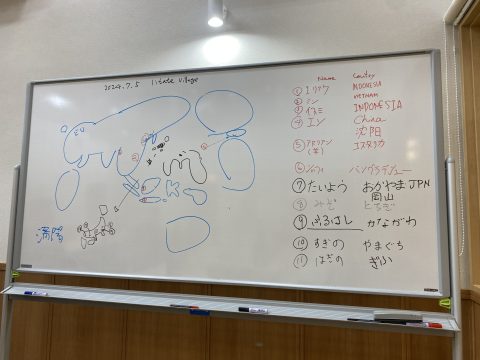 2024.7.5 Iitate Village
Name Country
① エリック INDONESIA
② アン VIETNAM
③ イスミ INDONESIA
④ エン China
沈阳
⑤ アドリアン (羊) コスタリカ
⑥ バングラデシュ
⑦ たいよう おかやま JPN
岡山
⑧ みど とちぎ
⑨ ふるはし かながわ
⑩ すぎの やまぐち
⑪ はぎの ぎふ